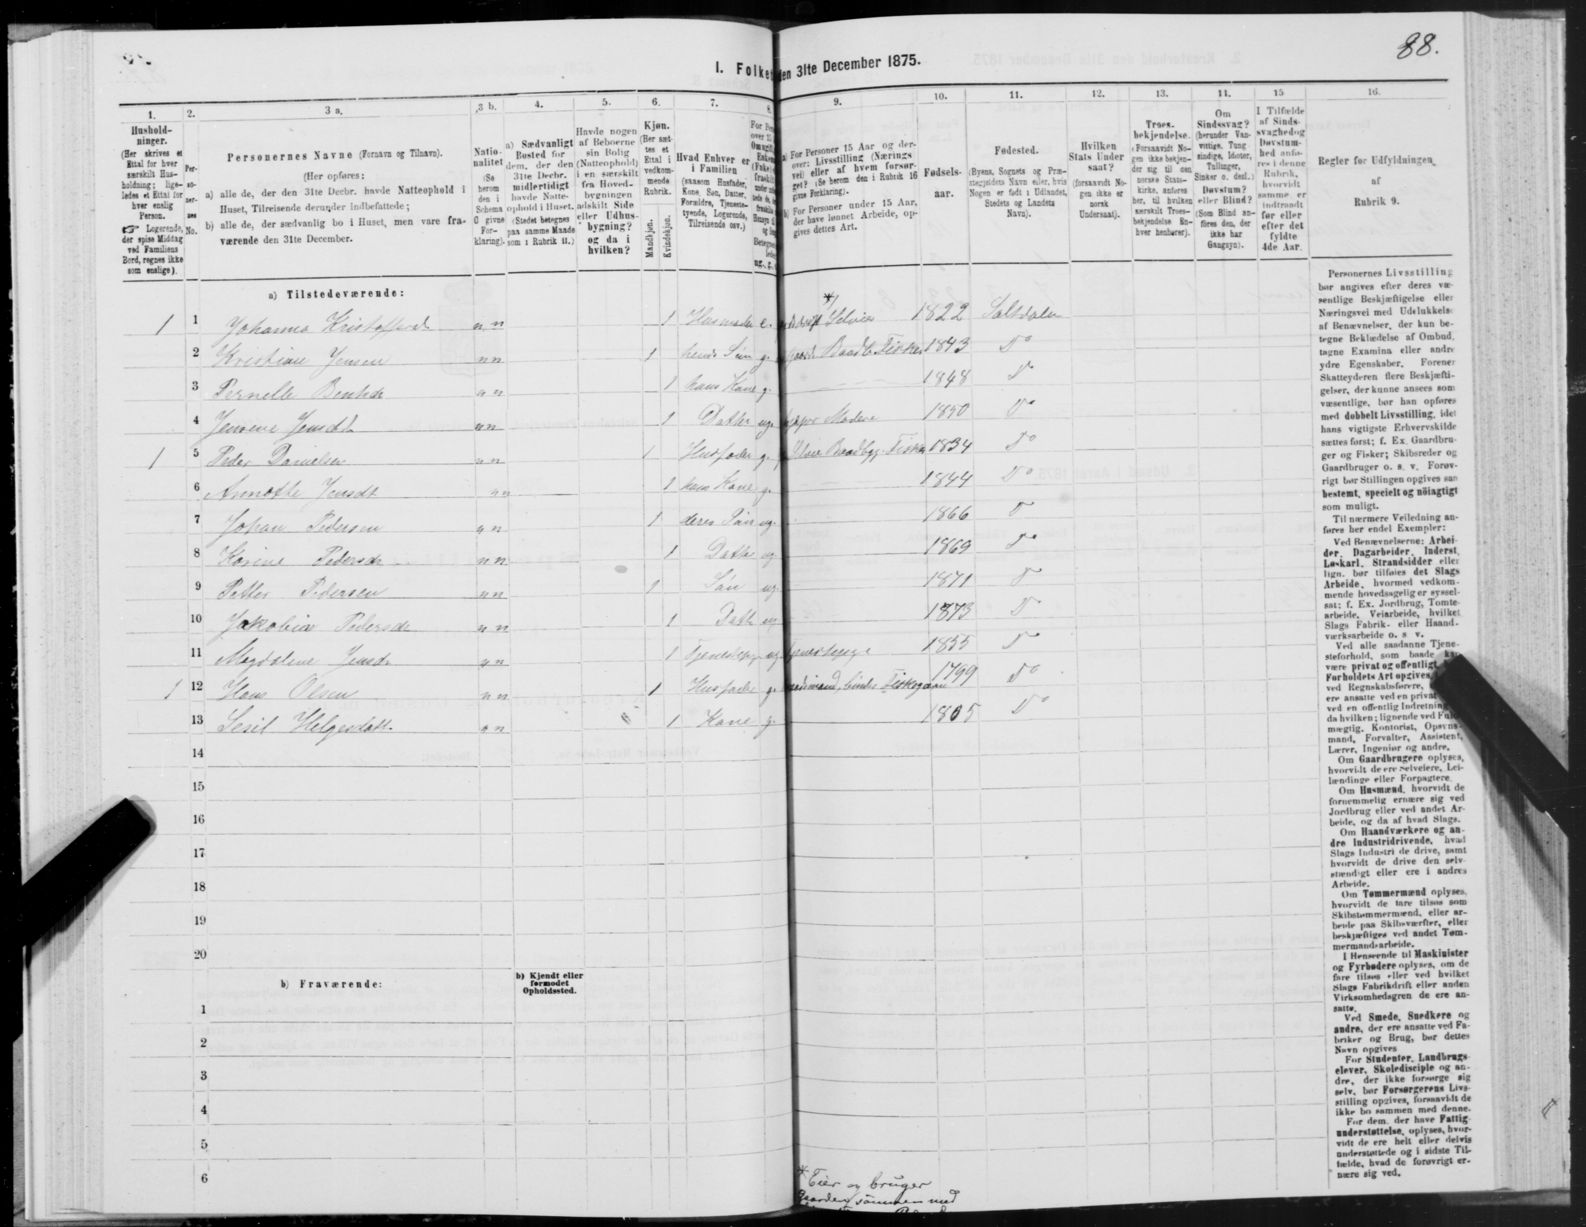 88.
I. Folket
den 31te December 1875.
1. 2. 3 a. 3 b. 4. 5. 6. 7. 8. 9. 10. 11. 12. 13. 14. 15 16.
Husholdninger.
(Her skrives et
Ettal for hver
særskilt Husholdning;
ligeledes et Ettal for
hver enslig
Person.
☞ Logerende,
der spise Middag
ved Familiens
Bord, regnes ikke
som enslige).
Personernes No.
Personernes Navne (Fornavn og Tilnavn).
(Her opføres:
a) alle de, der den 31te Decbr. havde Natteophold i
Huset, Tilreisende derunder indbefattede;
b) alle de, der sædvanlig bo i Huset, men vare fraværende
den 31te December.
Nationalitet
(Se
herom
den i
Schema
C givne
Forklaring).
a) Sædvanligt
Bosted for
dem, der den
31te Decbr.
midlertidigt
havde Natteophold
i Huset.
(Stedet betegnes
paa samme Maade
som i Rubrik 11.)
Havde nogen
af Beboerne
sin Bolig
(Natteophold)
i en særskilt
fra Hovedbygningen
adskilt Side
eller Udhusbygning?
og da i
hvilken?
Kjøn.
(Her sættes
et
Ettal i
vedkommende
Rubrik.
Mandkjøn.
Kvindekjøn.
Hvad Enhver er
i Familien
(saasom Husfader,
Kone, Søn, Datter,
Forældre, Tjenestetyende,
Logerende,
Tilreisende osv.)
a) For Personer 15 Aar og derover:
Livsstilling (Næringsvei)
eller af hvem forsørget?
(Se herom den i Rubrik 16
givne Forklaring).
b) For Personer under 15 Aar,
der have lønnet Arbeide, opgives
dettes Art.
Fødselsaar.
Fødested.
(Byens, Sognets og Præstegjeldets
Navn eller, hvis
Nogen er født i Udlandet,
Stedets og Landets
Navn).
Hvilken
Stats Undersaat?
(forsaavidt Nogen
ikke er
norsk
Undersaat).
Troesbekjendelse.
(Forsaavidt Nogen
ikke bekjender
sig til den
norske Statskirke,
anføres
her, til hvilken
særskilt Troesbekjendelse
Enhver
henhører).
Om
Sindssvag?
(herunder Vanvittige,
Tungsindige,
Idioter,
Tullinger,
Sinker o. desl.)
Døvstum?
eller Blind?
(Som Blind anføres
den, der
ikke har
Gangsyn).
I Tilfælde
af Sindssvaghed
og
Døvstumhed
anføres
i denne
Rubrik,
hvorvidt
samme er
indtraadt
før eller
efter det
fyldte
4de Aar.
Regler for Udfyldningen
af
Rubrik 9.
a) Tilstedeværende:
1 1 Johanna Kristoffersd nn 1 Husmoder e. Selveier 1822 Saltdalen
2 Kristian Jensen nn 1 hends Søn g. Baadb. Fisker 1843 Do
3 Pernelle Bentsd nn 1 hans Kone g. 1848 Do
4 Jensine Jensdt nn 1 Datter ug. Moderen 1850 Do
1 5 Peder Danielsen nn 1 Husfader g. Baadbyg. Fisker 1834 Do
6 Annethe Jensdt nn 1 hans Kone g. 1844 Do
7 Johan Pedersen nn 1 deres Søn ug. 1866 Do
8 Karine Pedersd nn 1 Datter ug 1869 Do
9 Petter Pedersen nn 1 Søn ug. 1871 Do
10 Jakobia Pedersd nn 1 Datt ug 1873 Do
11 Magdalene Jensd nn 1 Tjenestepige ug tjenestepige 1855 Do
1 12 Hans Olsen nn 1 Husfader g. binder Fiskegarn 1799 Do
13 Sesil Helgesdatt nn 1 Kone g. 1805 Do
14
15
16
17
18
19
20
b) Fraværende:
b) Kjendt eller
formodet
Opholdssted.
1
2
3
4
5
6
Personernes Livsstilling
bør angives efter deres væsentlige
Beskjæftigelse eller
Næringsvei med Udelukkelse
af Benævnelser, der kun betegne
Beklædelse af Ombud,
tagne Examina eller andre
ydre Egenskaber. Forener
Skatteyderen flere Beskjæftigelser,
der kunne ansees som
væsentlige, bør han opføres
med dobbelt Livsstilling, idet
hans vigtigste Erhvervskilde
sættes først; f. Ex. Gaardbruger
og Fisker; Skibsreder og
Gaardbruger o. s. v. Forøvrigt
bør Stillingen opgives saa
bestemt, specielt og nøiagtigt
som muligt.
Til nærmere Veiledning anføres
her endel Exempler:
Ved Benævnelserne: Arbeider,
Dagarbeider, Inderst,
Løskarl, Strandsidder eller
lign. bør tilføies det Slags
Arbeide, hvormed vedkommende
hovedsagelig er sysselsat;
f. Ex. Jordbrug, Tomtearbeide,
Veiarbeide, hvilket
Slags Fabrik- eller Haandværksarbeide
o. s. v.
Ved alle saadanne Tjenesteforhold,
som baade kan
være privat og offentligt,
Forholdets Art opgives,
ved Regnskabsførere,
ere ansatte ved en privat
ved en offentlig Indretning
da hvilken; lignende ved Fuldmægtig,
Kontorist, Opsynsmand,
Forvalter, Assistent,
Lærer, Ingeniør og andre.
Om Gaardbrugere oplyses,
hvorvidt de ere Selveiere, Leilændinge
eller Forpagtere.
Om Husmænd, hvorvidt de
fornemmelig ernære sig ved
Jordbrug eller ved andet Arbeide,
og da af hvad Slags.
Om Haandværkere og andre
Industridrivende, hvad
Slags Industri de drive, samt
hvorvidt de drive den selvstændigt
eller ere i andres
Arbeide.
Om Tømmermænd oplyses,
hvorvidt de fare tilsøs som
Skibstømmermænd, eller arbeide
paa Skibsværfter, eller
beskjæftiges ved andet Tømmermandsarbeide.
I Henseende til Maskinister
og Fyrbødere oplyses, om de
fare tilsøs eller ved hvilket
Slags Fabrikdrift eller anden
Virksomhedsgren de ere ansatte.
Ved Smede, Snedkere og
andre, der ere ansatte ved Fabriker
og Brug, bør dettes
Navn opgives
For Studenter, Landbrugselever,
Skoledisciple og andre,
der ikke forsørge sig
selv, bør Forsørgerens Livsstilling
opgives, forsaavidt de
ikke bo sammen med denne.
For dem, der have Fattigunderstøttelse,
oplyses, hvorvidt
de ere helt eller delvis
understøttede og i sidste Tilfælde,
hvad de forøvrigt ernære
sig ved.
* Eier og bruger
Gaarden sammen med